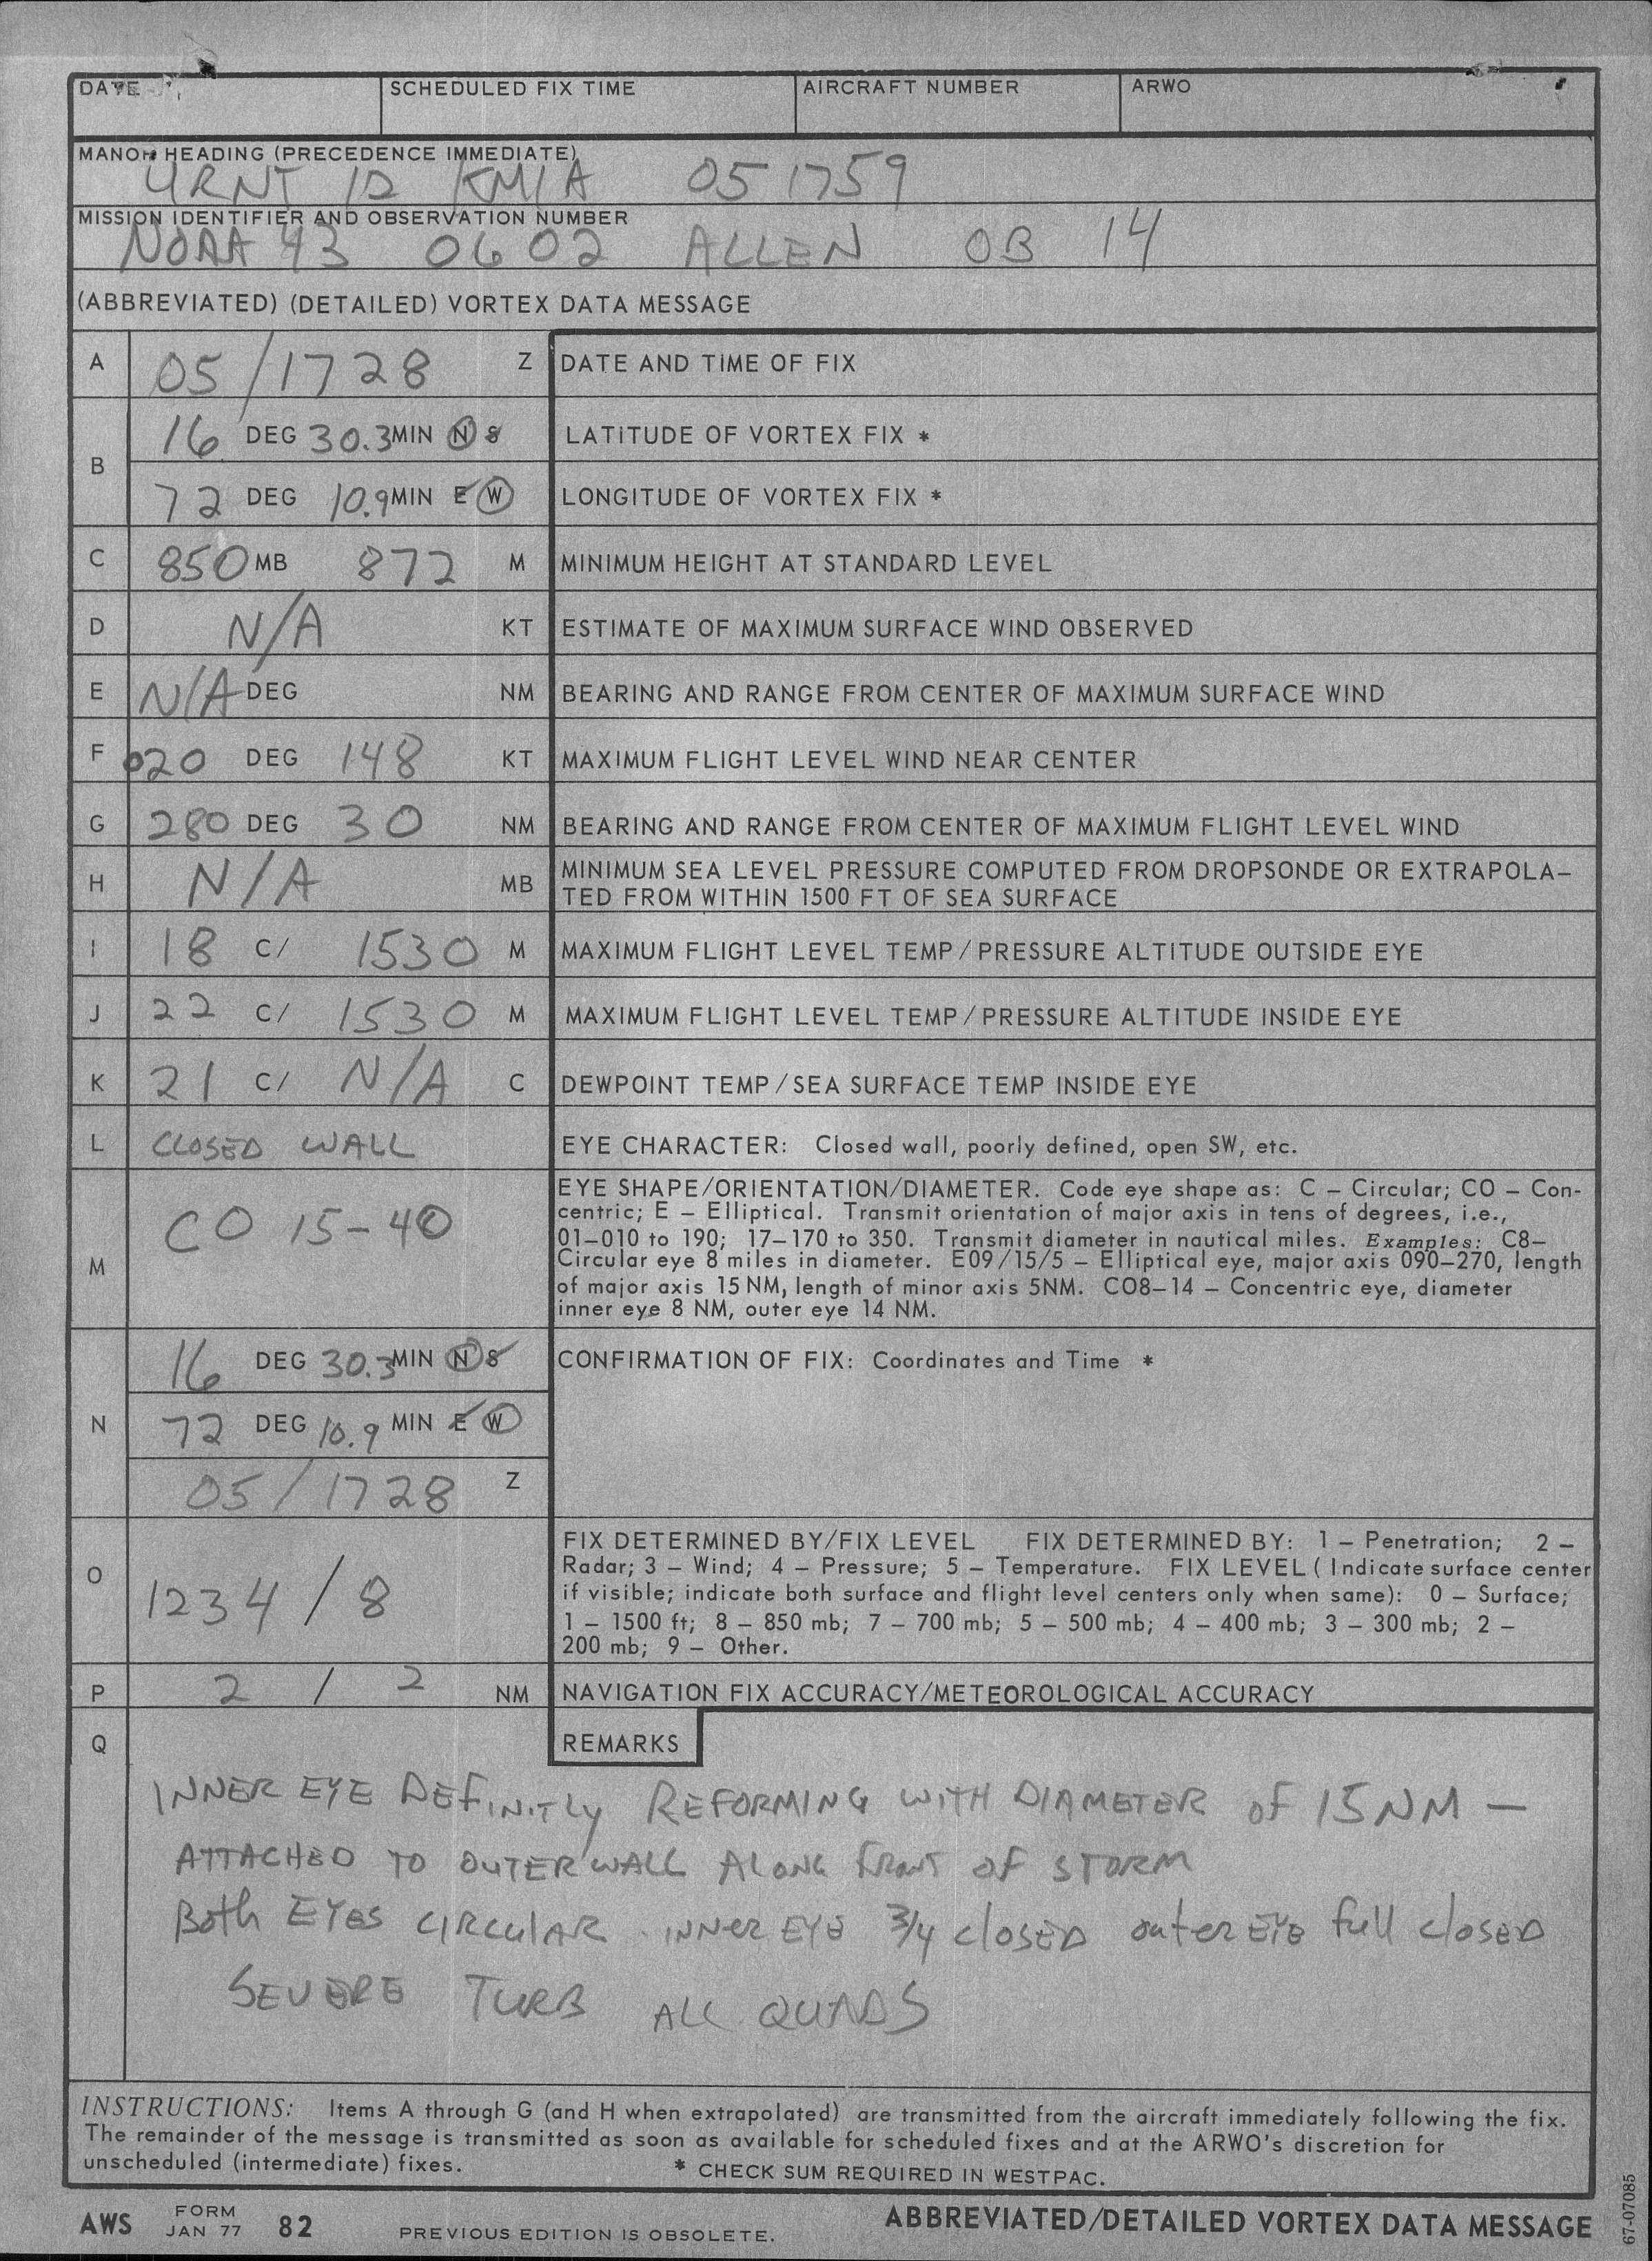 DATE SCHEDULED FIX TIME AIRCRAFT NUMBER ARWO
MANOP HEADING (PRECEDENCE IMMEDIATE)
URNT 12 KMIA 051759
MISSION IDENTIFIER AND OBSERVATION NUMBER
NOAA 43 0602 ALLEN OB 14
(ABBREVIATED) (DETAILED) VORTEX DATA MESSAGE
A 05/1728 Z DATE AND TIME OF FIX
B 16 DEG 30.3 MIN N S LATITUDE OF VORTEX FIX *
72 DEG 10.9 MIN E W LONGITUDE OF VORTEX FIX *
C 850 MB 872 M MINIMUM HEIGHT AT STANDARD LEVEL
D N/A KT ESTIMATE OF MAXIMUM SURFACE WIND OBSERVED
E N/A DEG NM BEARING AND RANGE FROM CENTER OF MAXIMUM SURFACE WIND
F 020 DEG 148 KT MAXIMUM FLIGHT LEVEL WIND NEAR CENTER
G 280 DEG 30 NM BEARING AND RANGE FROM CENTER OF MAXIMUM FLIGHT LEVEL WIND
H N/A MB MINIMUM SEA LEVEL PRESSURE COMPUTED FROM DROPSONDE OR EXTRAPOLA-
TED FROM WITHIN 1500 FT OF SEA SURFACE
I 18 C/ 1530 M MAXIMUM FLIGHT LEVEL TEMP/PRESSURE ALTITUDE OUTSIDE EYE
J 22 C/ 1530 M MAXIMUM FLIGHT LEVEL TEMP/PRESSURE ALTITUDE INSIDE EYE
K 21 C/ N/A C DEWPOINT TEMP/SEA SURFACE TEMP INSIDE EYE
L CLOSED WALL EYE CHARACTER: Closed wall, poorly defined, open SW, etc.
M CO 15-40 EYE SHAPE/ORIENTATION/DIAMETER. Code eye shape as: C – Circular; CO – Con-
centric; E – Elliptical. Transmit orientation of major axis in tens of degrees, i.e.,
01–010 to 190; 17–170 to 350. Transmit diameter in nautical miles. Examples: C8–
Circular eye 8 miles in diameter. E09/15/5 – Elliptical eye, major axis 090–270, length
of major axis 15 NM, length of minor axis 5NM. CO8–14 – Concentric eye, diameter
inner eye 8 NM, outer eye 14 NM.
N 16 DEG 30.3 MIN N S CONFIRMATION OF FIX: Coordinates and Time *
72 DEG 10.9 MIN E W
05/1728 Z
O 1234/8 FIX DETERMINED BY/FIX LEVEL FIX DETERMINED BY: 1 – Penetration; 2 –
Radar; 3 – Wind; 4 – Pressure; 5 – Temperature. FIX LEVEL (Indicate surface center
if visible; indicate both surface and flight level centers only when same): 0 – Surface;
1 – 1500 ft; 8 – 850 mb; 7 – 700 mb; 5 – 500 mb; 4 – 400 mb; 3 – 300 mb; 2 –
200 mb; 9 – Other.
P 2 / 2 NM NAVIGATION FIX ACCURACY/METEOROLOGICAL ACCURACY
Q REMARKS
INNER EYE DEFINITLY REFORMING WITH DIAMETER OF 15 NM –
ATTACHED TO OUTER WALL ALONG FRONT OF STORM
Both EYES CIRCULAR. INNER EYE 3/4 closed outer EYE full closed
SEVERE TURB ALL QUADS
INSTRUCTIONS: Items A through G (and H when extrapolated) are transmitted from the aircraft immediately following the fix.
The remainder of the message is transmitted as soon as available for scheduled fixes and at the ARWO's discretion for
unscheduled (intermediate) fixes. * CHECK SUM REQUIRED IN WESTPAC.
AWS FORM JAN 77 82 PREVIOUS EDITION IS OBSOLETE. ABBREVIATED/DETAILED VORTEX DATA MESSAGE
67-07085